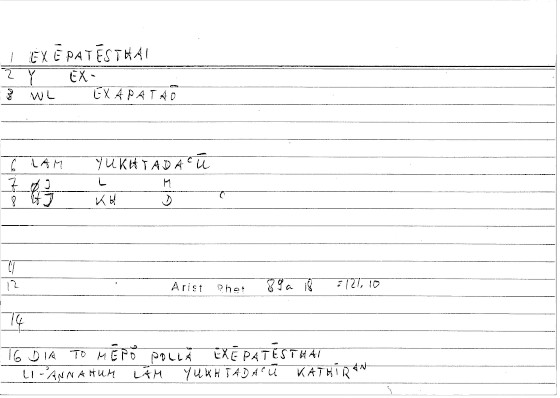 1 EXĒPATĒSTHAI
2 Y EX-
3 WL EXAPATAŌ
6 LAM YUKHTADAʿŪ
7 J L M
8 J KH D ʿ
9
12 Arist Rhet 89a 18 =121,10
14
16 DIA TO MĒPŌ POLLA EXĒPATĒSTHAI
LI-ʾANNAHUM LAM YUKHTADAʿŪ KATHĪRAN